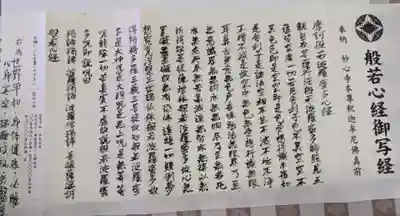 般若心経御写経
奉納　妙心寺本尊釈迦牟尼佛真前
摩訶般若波羅蜜多心経
観自在菩薩行深般若波羅蜜多時照見五
蘊皆空度一切苦厄舎利子色不異空空不
異色色即是空空即是色受想行識亦復如
是舎利子是諸法空相不生不滅不垢不浄
不増不減是故空中無色無受想行識無眼
耳鼻舌身意無色声香味触法無眼界乃至
無意識界無無明亦無無明尽乃至無老死
亦無老死尽無苦集滅道無智亦無得以無
所得故菩提薩埵依般若波羅蜜多故心無
罣礙無罣礙故無有恐怖遠離一切顛倒夢
想究竟涅槃三世諸佛依般若波羅蜜多故
得阿耨多羅三藐三菩提故知般若波羅蜜
多是大神呪是大明呪是無上呪是無等等
呪能除一切苦真実不虚故説般若波羅蜜
多呪即説呪曰
羯諦羯諦　波羅羯諦　波羅僧羯諦　菩提薩婆訶
般若心経
右為世界平和　身体健康　心願